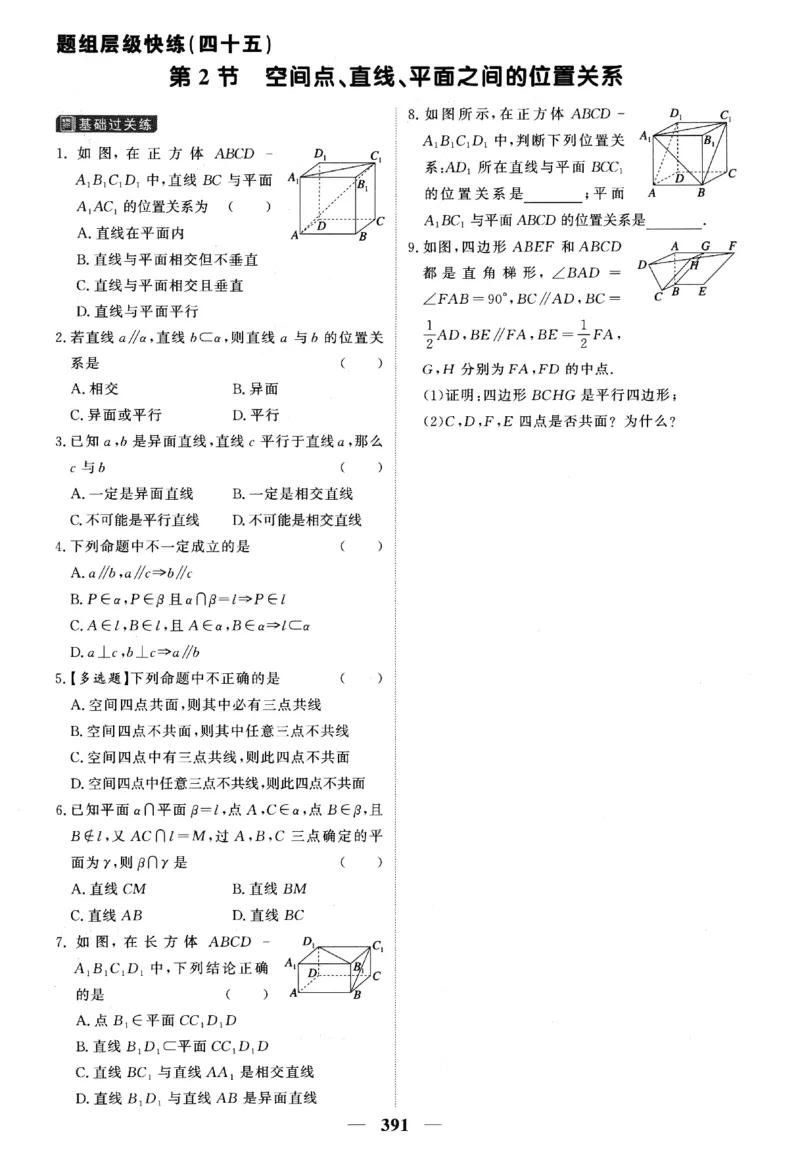 题组层级快练(四十五)
第 2 节 空间点、直线、平面之间的位置关系
基础过关练
1. 如图,在正方体 ABCD -
A₁B₁C₁D₁ 中,直线 BC 与平面
A₁AC₁ 的位置关系为 ( )
A. 直线在平面内
B. 直线与平面相交但不垂直
C. 直线与平面相交且垂直
D. 直线与平面平行
D₁ C₁ A₁ B₁ D C A B
2. 若直线 a∥α,直线 b⊂α,则直线 a 与 b 的位置关
系是 ( )
A. 相交 B. 异面
C. 异面或平行 D. 平行
3. 已知 a,b 是异面直线,直线 c 平行于直线 a,那么
c 与 b ( )
A. 一定是异面直线 B. 一定是相交直线
C. 不可能是平行直线 D. 不可能是相交直线
4. 下列命题中不一定成立的是 ( )
A. a∥b,a∥c⇒b∥c
B. P∈α,P∈β 且 α∩β=l⇒P∈l
C. A∈l,B∈l,且 A∈α,B∈α⇒l⊂α
D. a⊥c,b⊥c⇒a∥b
5.【多选题】下列命题中不正确的是 ( )
A. 空间四点共面,则其中必有三点共线
B. 空间四点不共面,则其中任意三点不共线
C. 空间四点中有三点共线,则此四点不共面
D. 空间四点中任意三点不共线,则此四点不共面
6. 已知平面 α∩平面 β=l,点 A,C∈α,点 B∈β,且
B∉l,又 AC∩l=M,过 A,B,C 三点确定的平
面为 γ,则 β∩γ 是 ( )
A. 直线 CM B. 直线 BM
C. 直线 AB D. 直线 BC
7. 如图,在长方体 ABCD -
A₁B₁C₁D₁ 中,下列结论正确
的是 ( )
D₁ C₁ A₁ B₁ D C A B
A. 点 B₁∈平面 CC₁D₁D
B. 直线 B₁D₁⊂平面 CC₁D₁D
C. 直线 BC₁ 与直线 AA₁ 是相交直线
D. 直线 B₁D₁ 与直线 AB 是异面直线
8. 如图所示,在正方体 ABCD -
A₁B₁C₁D₁ 中,判断下列位置关
系:AD₁ 所在直线与平面 BCC₁
的位置关系是________;平面
A₁BC₁ 与平面 ABCD 的位置关系是________.
D₁ C₁ A₁ B₁ D C A B
9. 如图,四边形 ABEF 和 ABCD
都是直角梯形,∠BAD =
∠FAB=90°,BC∥AD,BC=
1/2 AD,BE∥FA,BE=1/2 FA,
G,H 分别为 FA,FD 的中点.
A G F D H C B E
(1)证明:四边形 BCHG 是平行四边形;
(2)C,D,F,E 四点是否共面? 为什么?
— 391 —